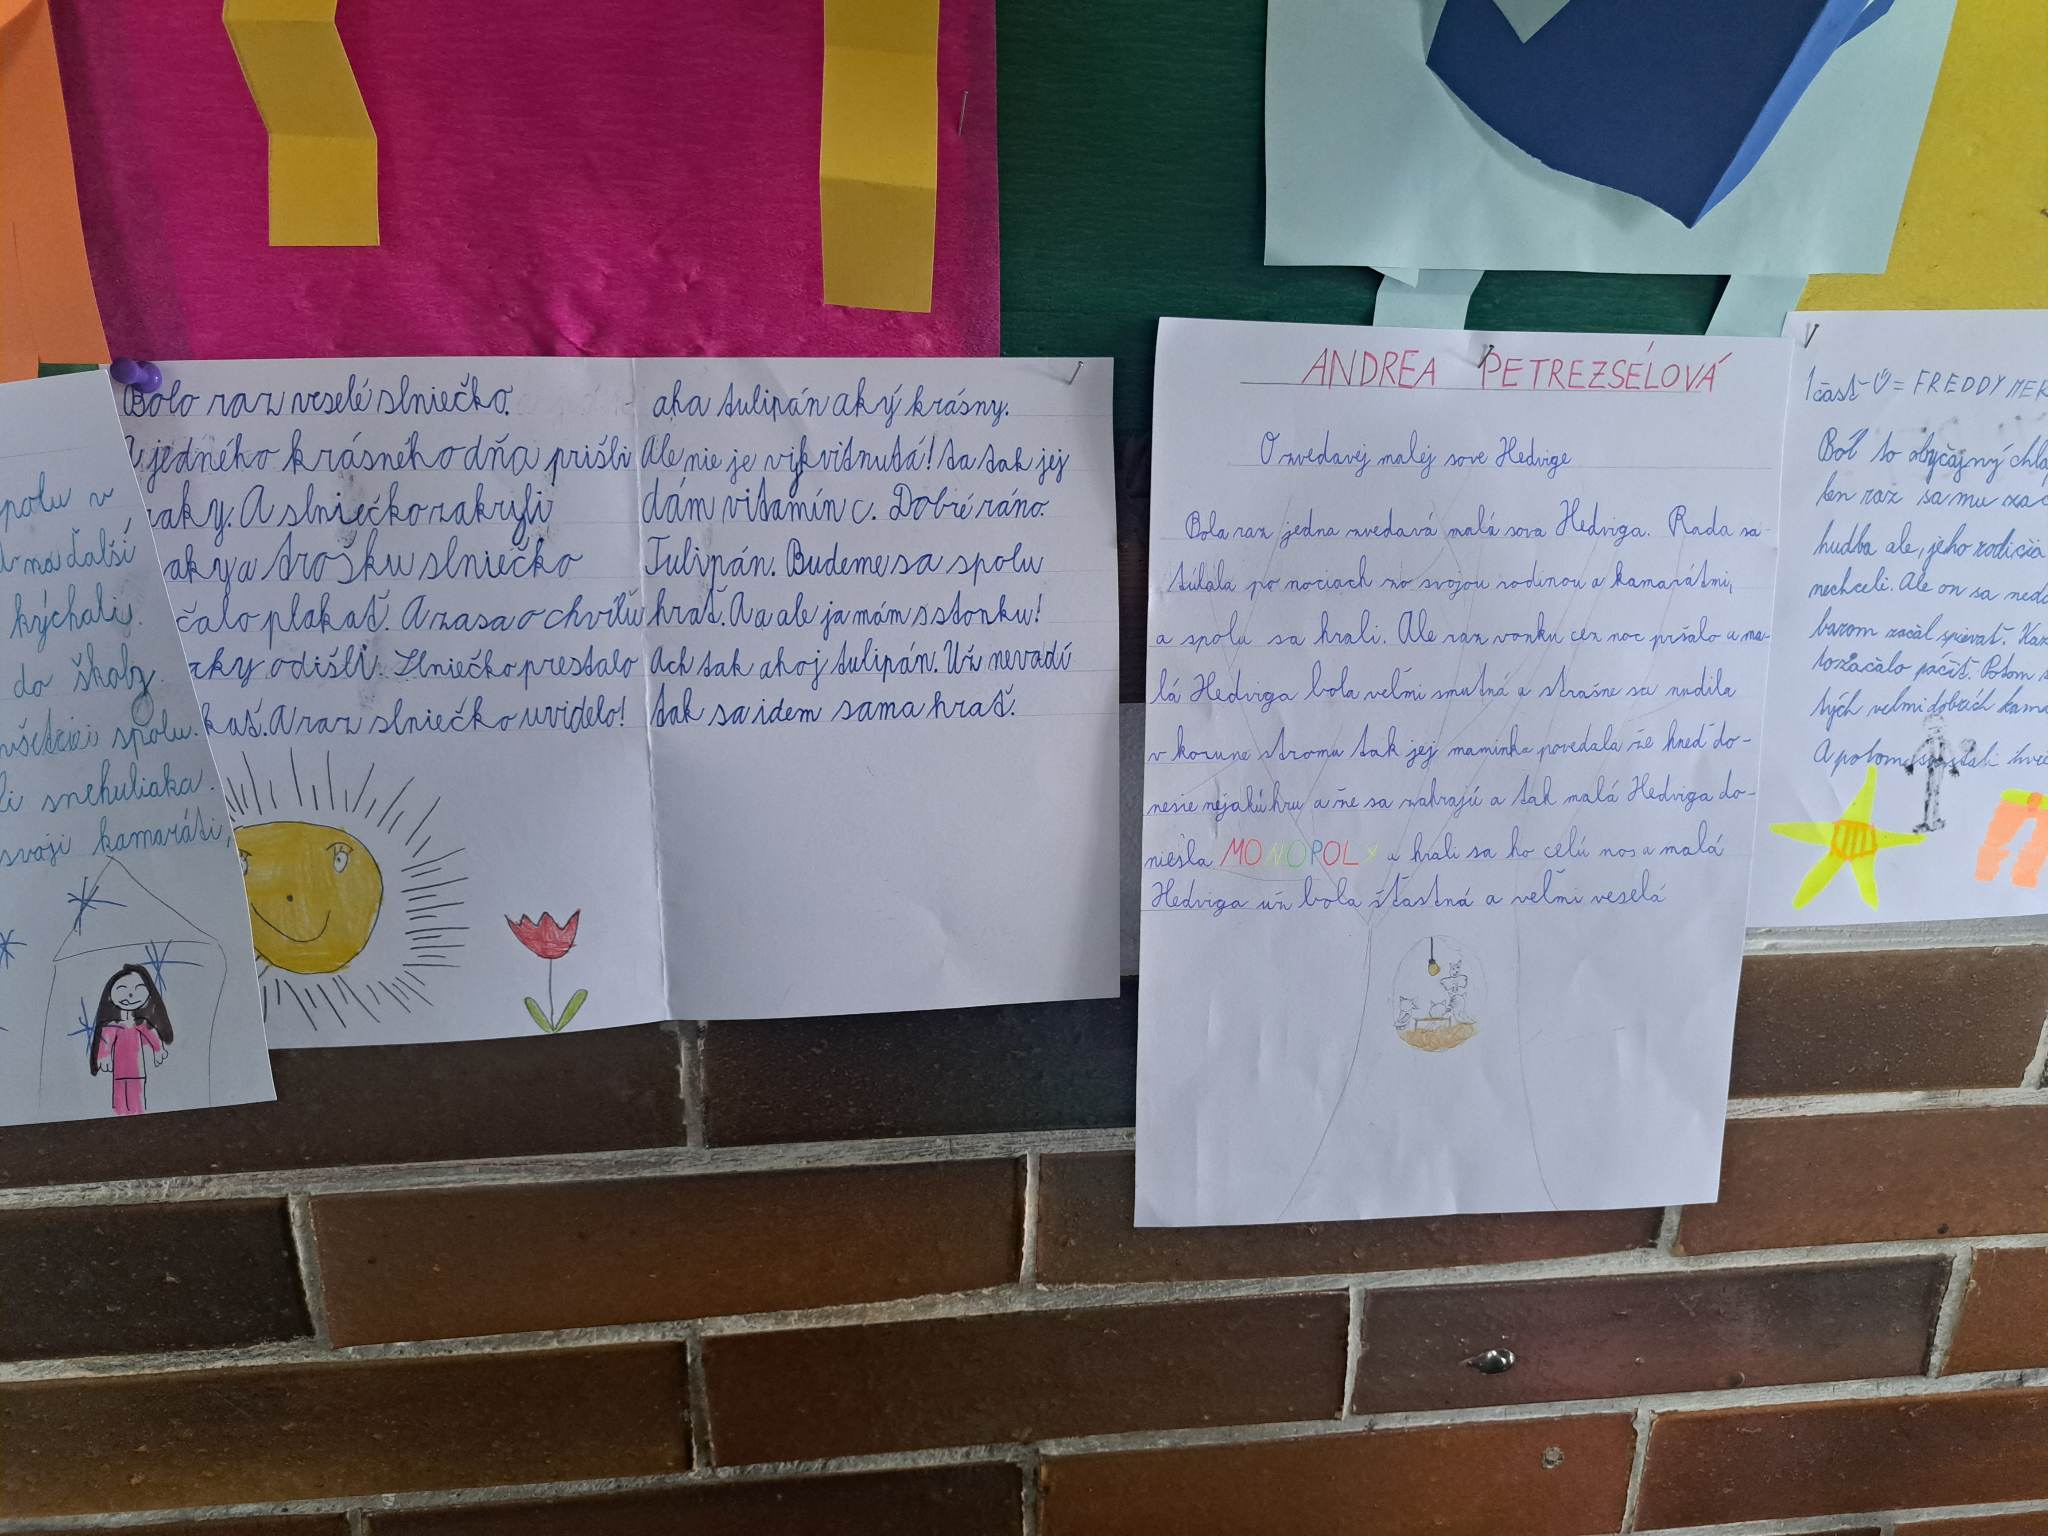 spolu v
na ďalší
kýchali.
do školy.
všetci spolu.
li snehuliaka.
svoji kamaráti,
Bolo raz veselé slniečko.
A jedného krásného dňa prišli
raky. A slniečko zakryli
aky a trošku slniečko
čalo plakať. A zasa o chvíľu
raky odišli. Slniečko prestalo
kať. A raz slniečko uvidelo!
aha tulipán aký krásny.
Ale nie je vykvitnutá! ta tak jej
dám vitamín c. Dobré ráno.
Tulipán. Budeme sa spolu
hrať. Aa ale ja mám sstonku!
Ach tak ahoj tulipán. Už nevadí
tak sa idem sama hrať.
ANDREA PETREZSÉLOVÁ
O zvedavej malej sove Hedvige
Bola raz jedna zvedavá malá sova Hedviga. Rada sa
túlala po nociach zo svojou rodinou a kamarátmi,
a spolu sa hrali. Ale raz vonku cez noc pršalo a ma-
lá Hedviga bola veľmi smutná a strašne sa nudila
v korune stromu tak jej maminka povedala že hneď do-
nesie nejakú hru a že sa zahrajú a tak malá Hedviga do-
niesla MONOPOLY a hrali sa ho celú noc a malá
Hedviga už bola šťastná a veľmi veselá
1 časť = FREDDY MER
Bol to obyčajný chla
len raz sa mu zač
hudba ale, jeho rodičia
nechceli. Ale on sa neda
barom začal spievať.
to začalo páčiť. Potom s
tých veľmi dobrích kama
A potom sa stali hvie